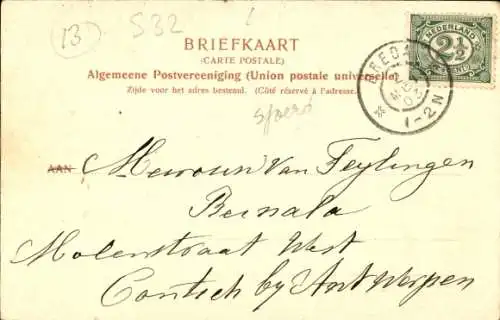 13
S32
BRIEFKAART
(CARTE POSTALE)
Algemeene Postvereeniging (Union postale universelle)
Zijde voor het adres bestemd. (Côté réservé à l'adresse.)
NEDERLAND
2½
CENT
BREDA
1-2N
AAN
Mevrouw Van Teylingen
Molenstraat West
Contich by Antwerpen